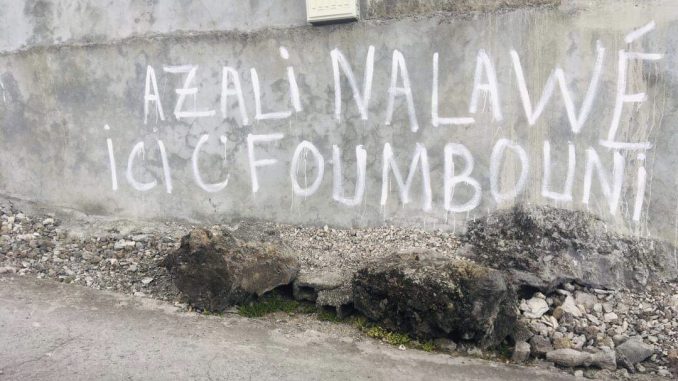 AZALİ NALAWÉ
İCİ C'FOUMBOUNİ